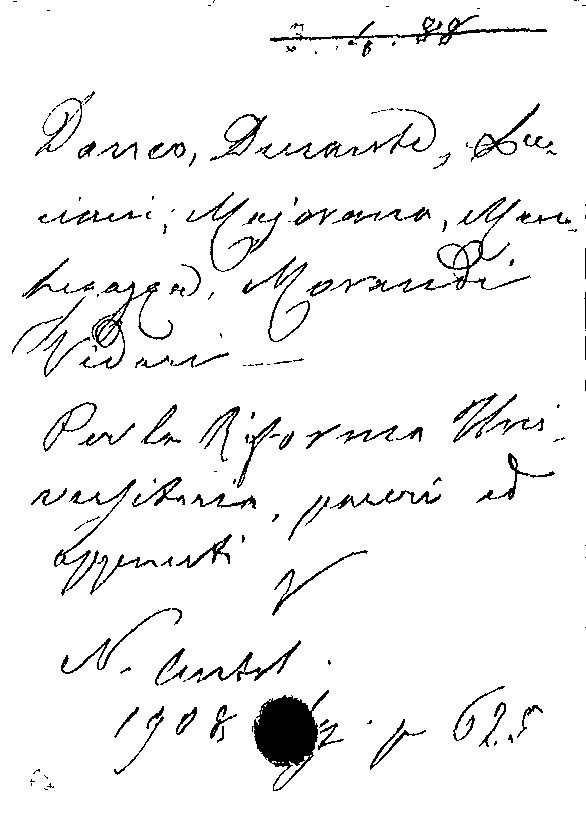 Daneo, Durante, Lu-
ciani, Majorana, Man-
tegazza, Morandi
Vidari —
Per la Riforma Uni-
versitaria, pareri ed
appunti
N. Antol.
1908 p 625